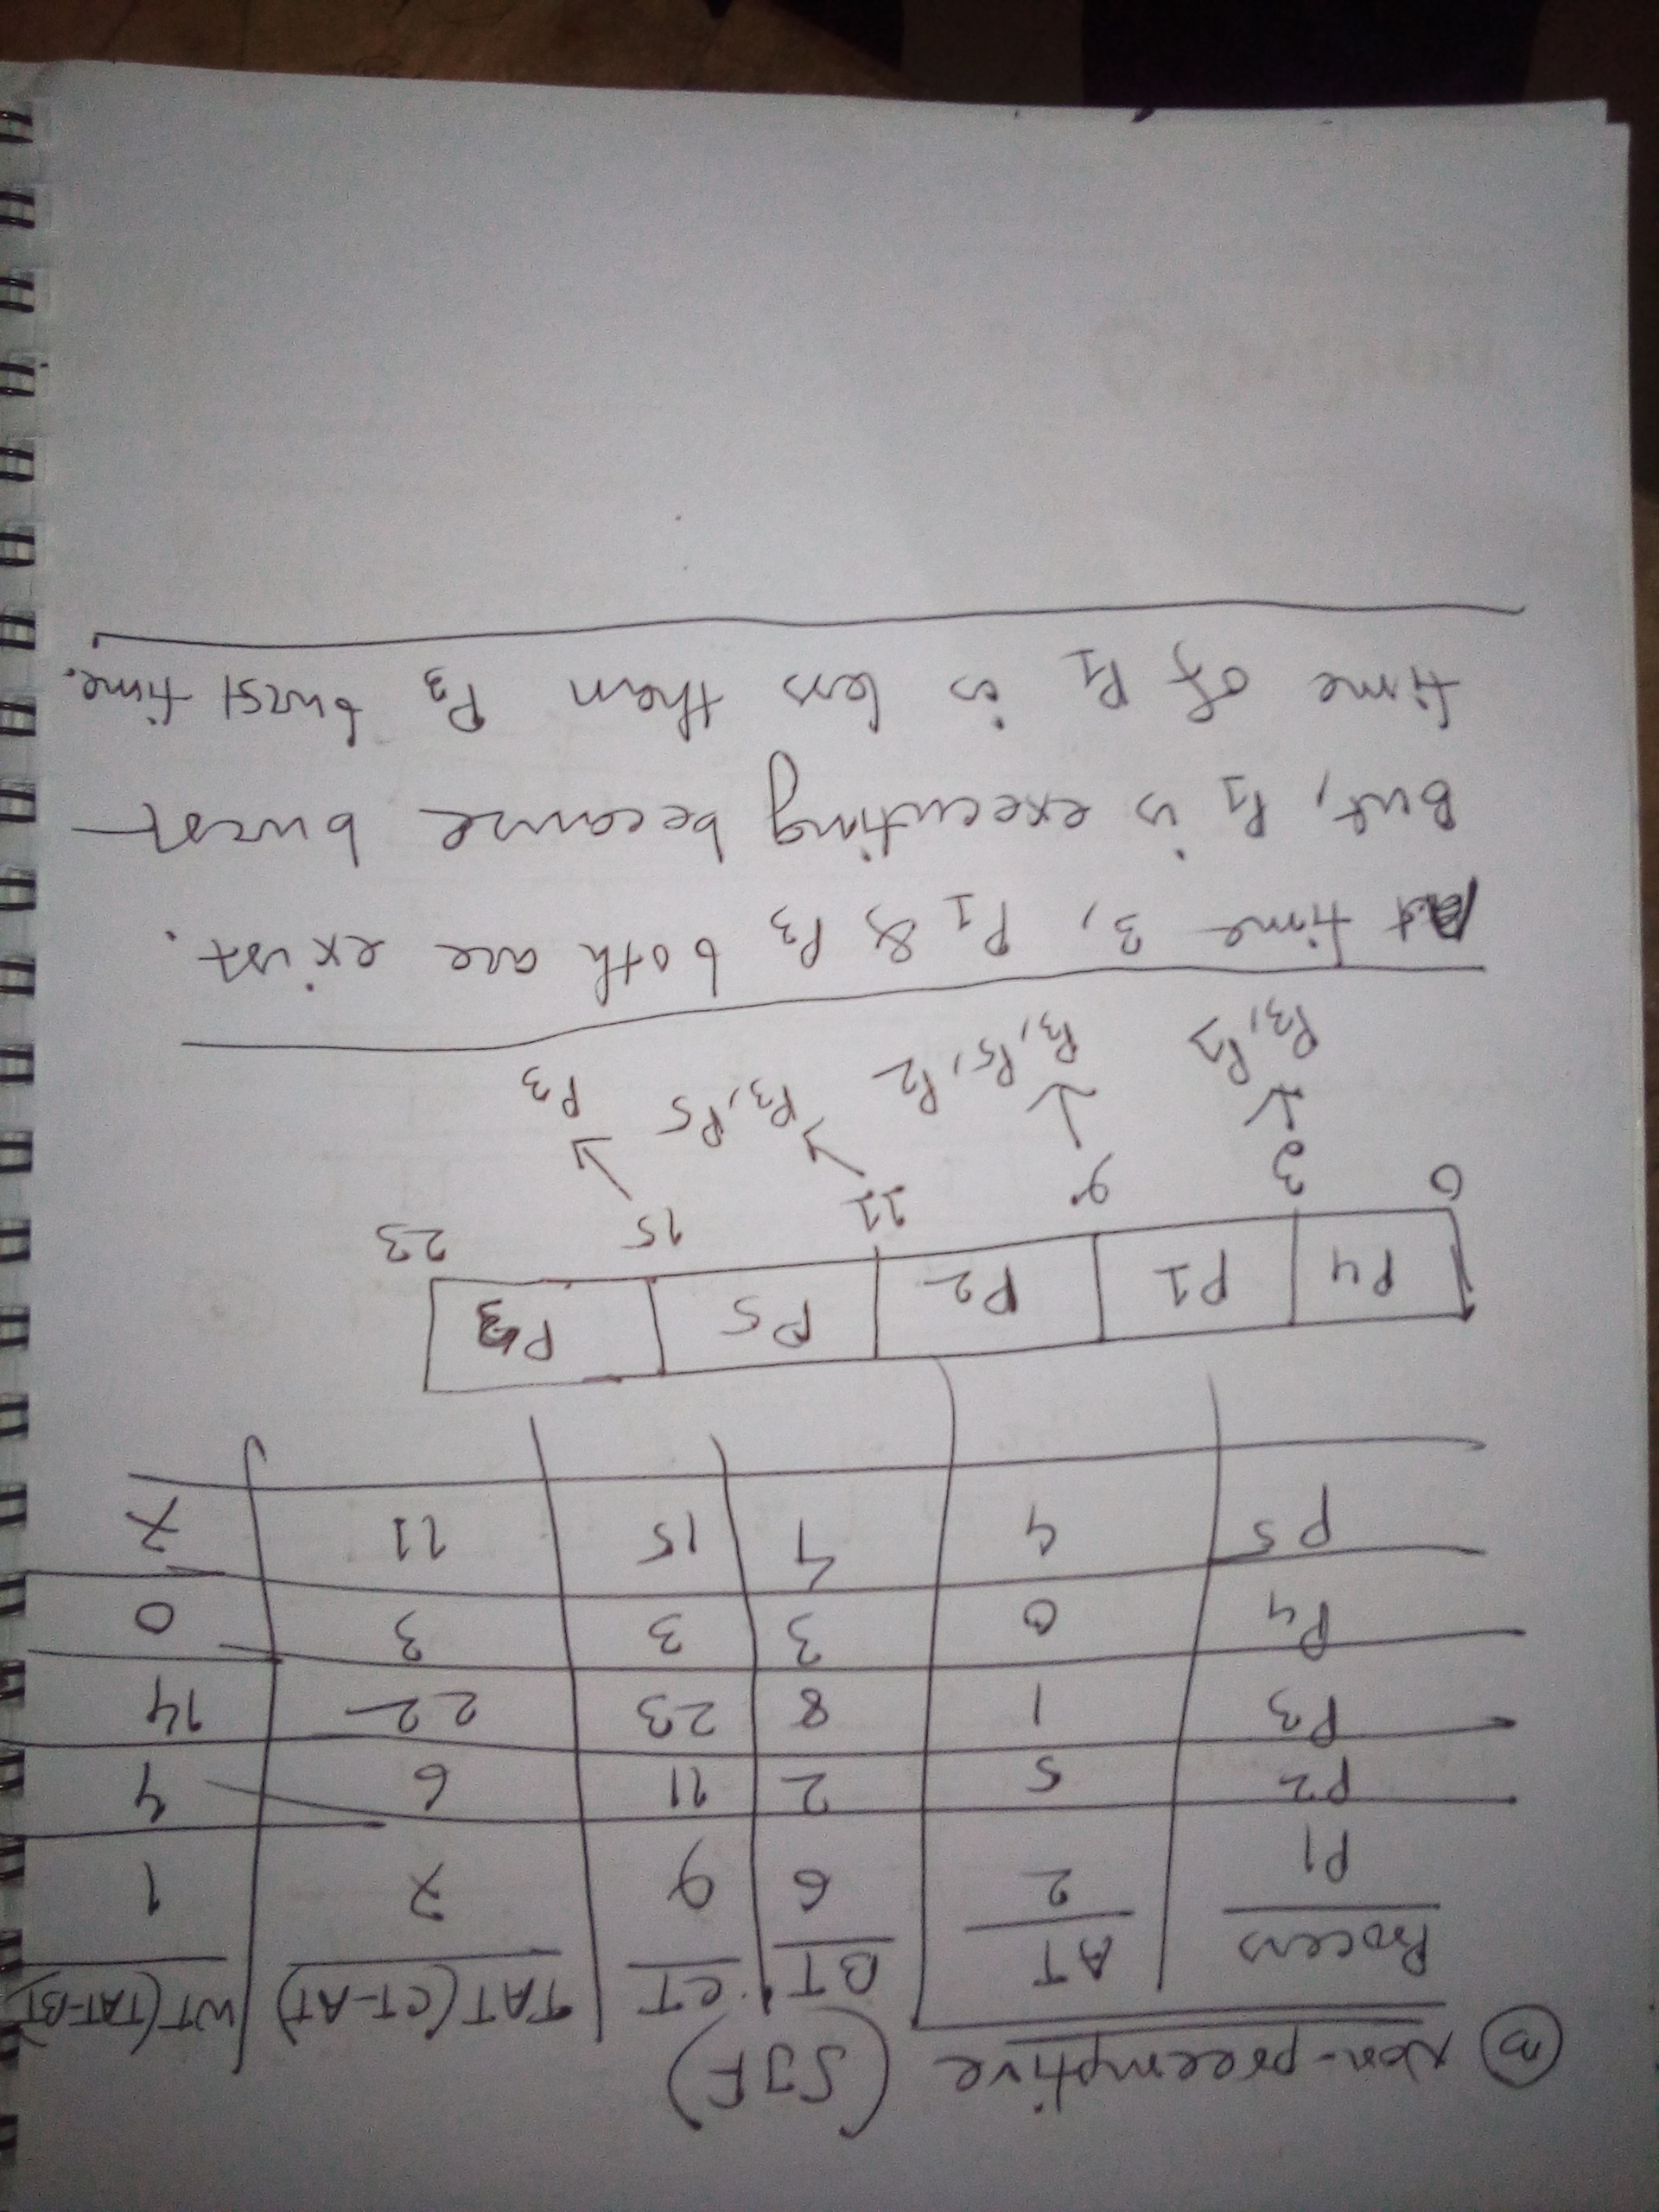 ③ Non-preemptive (SJF)
Process | AT | BT | CT | TAT (CT-AT) | WT (TAT-BT)
P1 | 2 | 6 | 9 | 7 | 1
P2 | 5 | 2 | 11 | 6 | 4
P3 | 1 | 8 | 23 | 22 | 14
P4 | 0 | 3 | 3 | 3 | 0
P5 | 4 | 4 | 15 | 11 | 7
P4 | P1 | P2 | P5 | P3
0 3 9 11 15 23
P3, P1 P3, P5, P2 P3, P5 P3
At time 3, P1 & P3 both are exist.
But, P1 is executing because burst
time of P1 is less than P3 burst time.